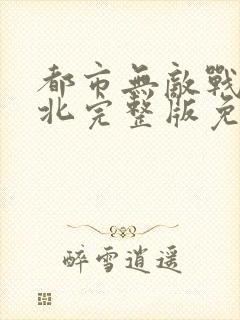 都市無敵戰
北完整版免
醉雪逍遥